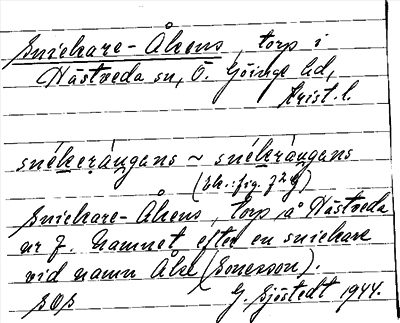 Sniekare-Åkens, torp i
Hästveda sn, Ö. Göinge hd,
Krist. l.
snékeráugans ~ snékráugans
Sniekare-Åkens, torp å Hästveda
nr 7. Namnet efter en sniekare
vid namn Åke (Bonesson).
G. Sjöstedt 1944.